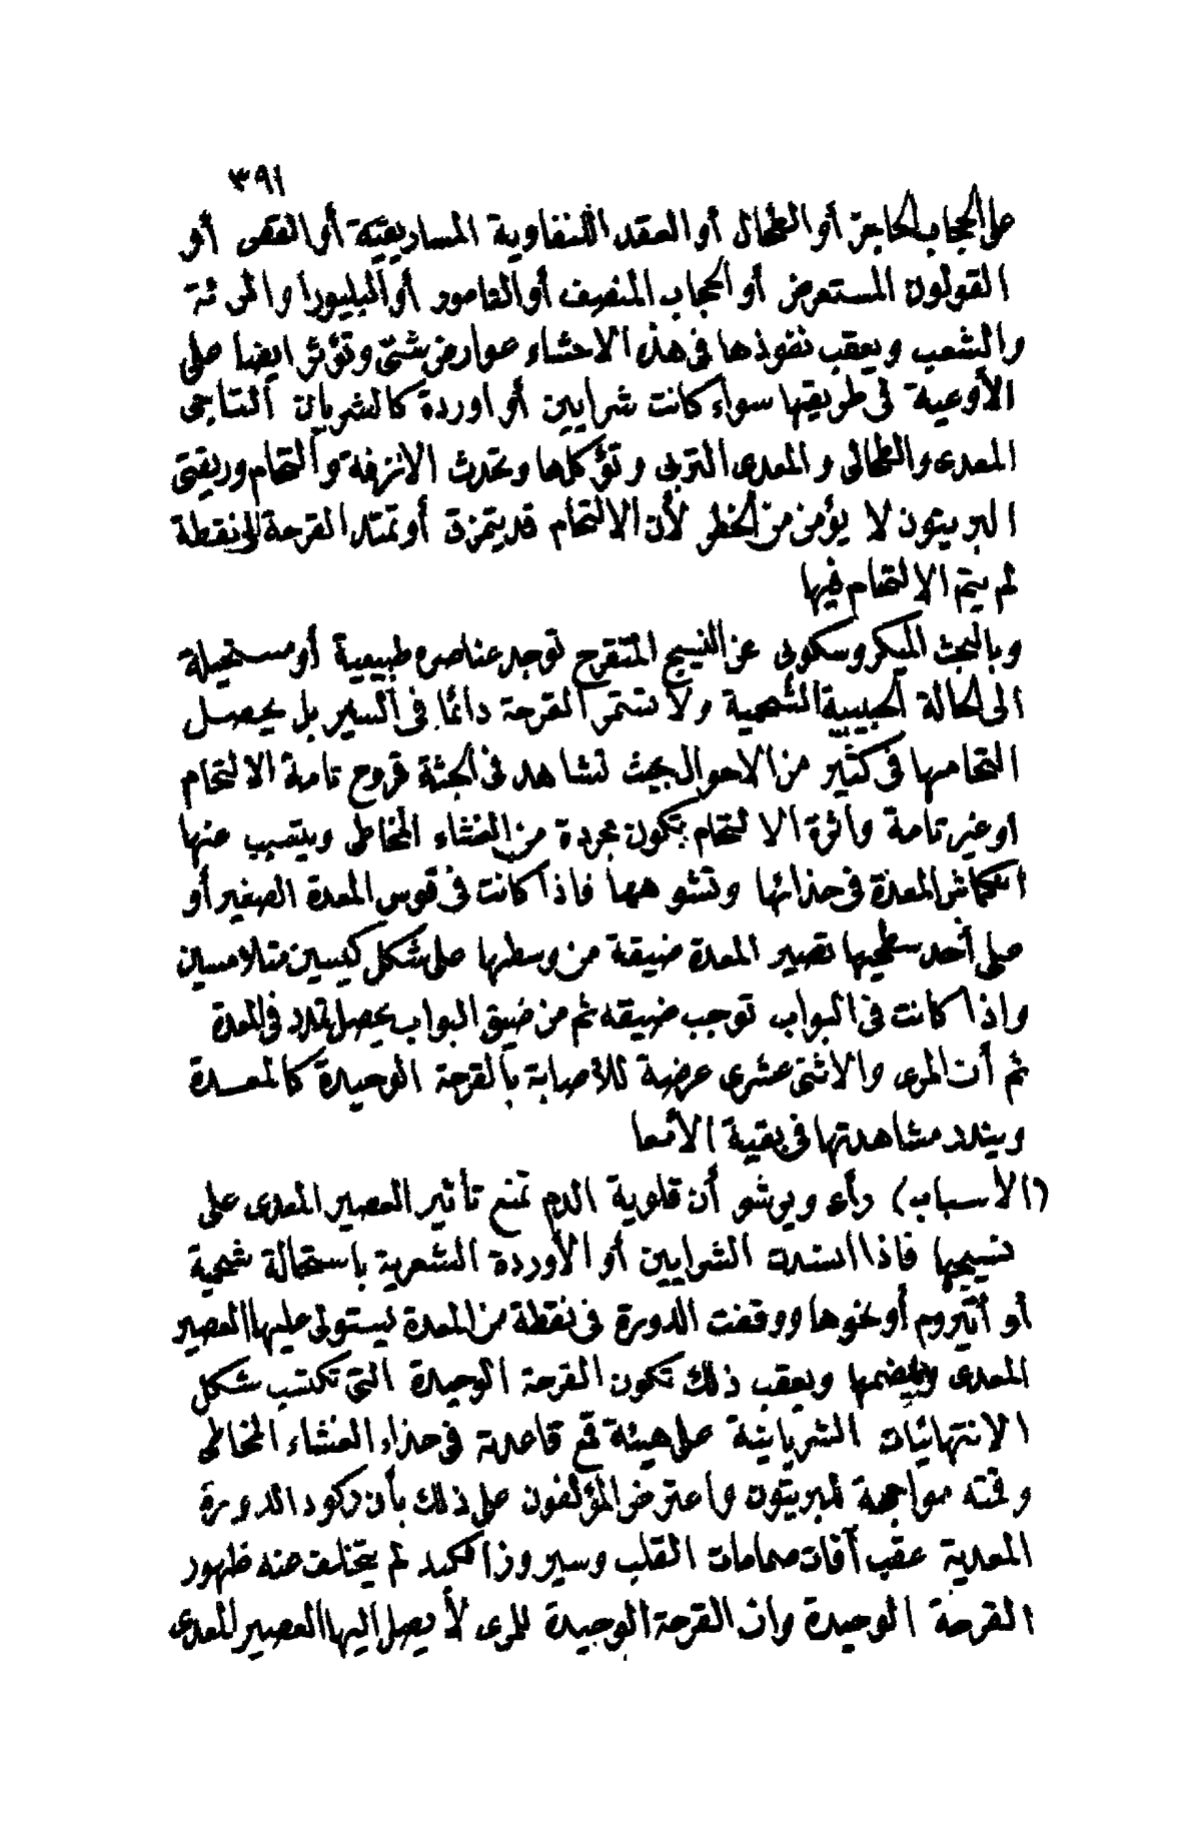 ٣٩١
على الحجاب الحاجز أو الطحال أو العقد اللنفاوية المساريقية أو القص أو
القولون المستعرض أو الحجاب المنصف أو التامور أو البليورا والرئة
والشعب ويعقب نفوذها فى هذه الاحشاء عوارض شتى وتؤثر ايضا على
الأوعية فى طريقها سواء كانت شرايين أو اوردة كالشريان التاجى
المعدى والطحالى والمعدى الثربى وتؤكلها وتحدث الانزفة والتحام وريقتى
البريتون لا يؤمن من الخطر لأن الالتحام قد يتمزق أو تمتد القرحة الى نقطة
لم يتم الالتحام فيها
وبالبحث الميكروسكوبى عن النسيج المتقرح توجد عناصره طبيعية أو مستحيلة
الى الحالة الحبيبية الشحمية ولا تستمر القرحة دائما فى السير بل يحصل
التحامها فى كثير من الاحوال بحيث تشاهد فى الجثة قروح تامة الالتحام
او غير تامة واثرة الالتحام تكون مجردة من الغشاء المخاطى ويتسبب عنها
انكماش المعدة فى حذائها وتشوهها فاذا كانت فى قوس المعدة الصغير أو
على أحد سطحيها تصير المعدة ضيقة من وسطها على شكل كيسين متلامسين
واذا كانت فى البواب توجب ضيقه ثم من ضيق البواب يحصل تمدد فى المعدة
ثم أن المرى والاثنى عشرى عرضة للأصابة بالقرحة الوحيدة كالمعدة
ويندر مشاهدتها فى بقية الأمعا
(الأسباب) رأى ويوشو أن قلوية الدم تمنع تأثير العصير المعدى على
نسيجها فاذا انسدت الشرايين أو الأوردة الشعرية باستحالة شحمية
أو أتيروم أو نحوها ووقفت الدورة فى نقطة من المعدة يستولى عليها العصير
المعدى ويهضمها ويعقب ذلك تكون القرحة الوحيدة التى تكتسب شكل
الانتهائيات الشريانية على هيئة قمع قاعدته فى حذاء الغشاء المخاطى
وقمته مواجهة للبريتون واعترض المؤلفون على ذلك بأن ركود الدورة
المعدية عقب آفات صمامات القلب وسيروز الكبد لم يتخلف عنه ظهور
القرحة الوحيدة وان القرحة الوحيدة للمرى لا يصل اليها العصير المعدى